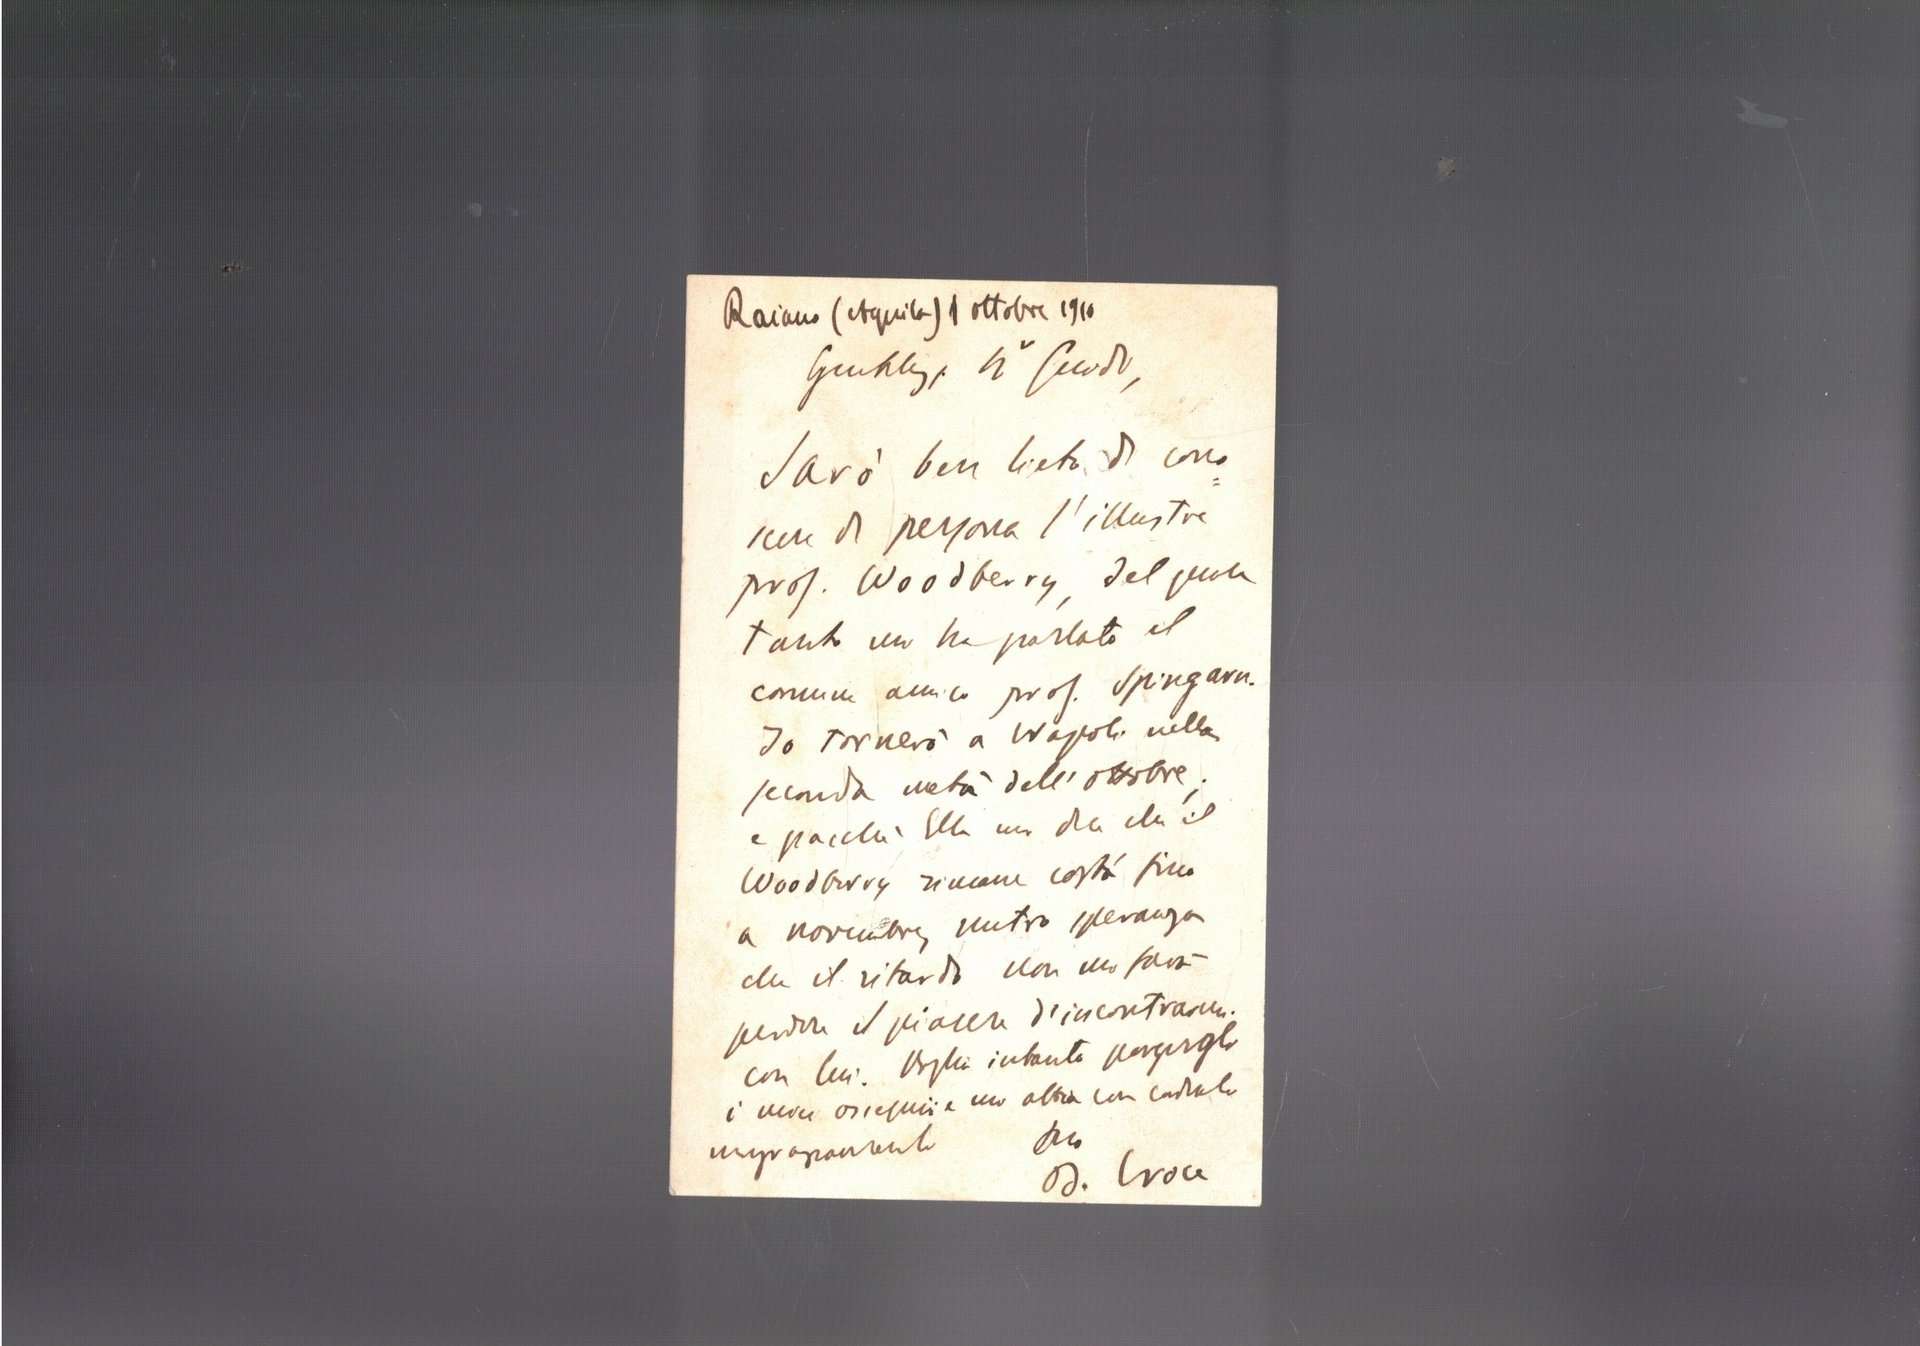 Raiano (Aquila) 1 ottobre 1910
Gentilis. Sr
Sarò ben lieto di cono=
scere di persona l'illustre
prof. Woodberry, del quale
tanto mi ha parlato il
comune amico prof. Spingarn.
Io tornerò a Napoli nella
seconda metà dell'ottobre;
e poiché Ella mi dice che il
Woodberry rimane costà fino
a novembre, nutro speranza
che il ritardo non mi farà
perdere il piacere d'incontrarmi
con lui. Voglia intanto porgergli
i miei ossequii e mi abbia con cordiale
ringraziamento suo
B. Croce